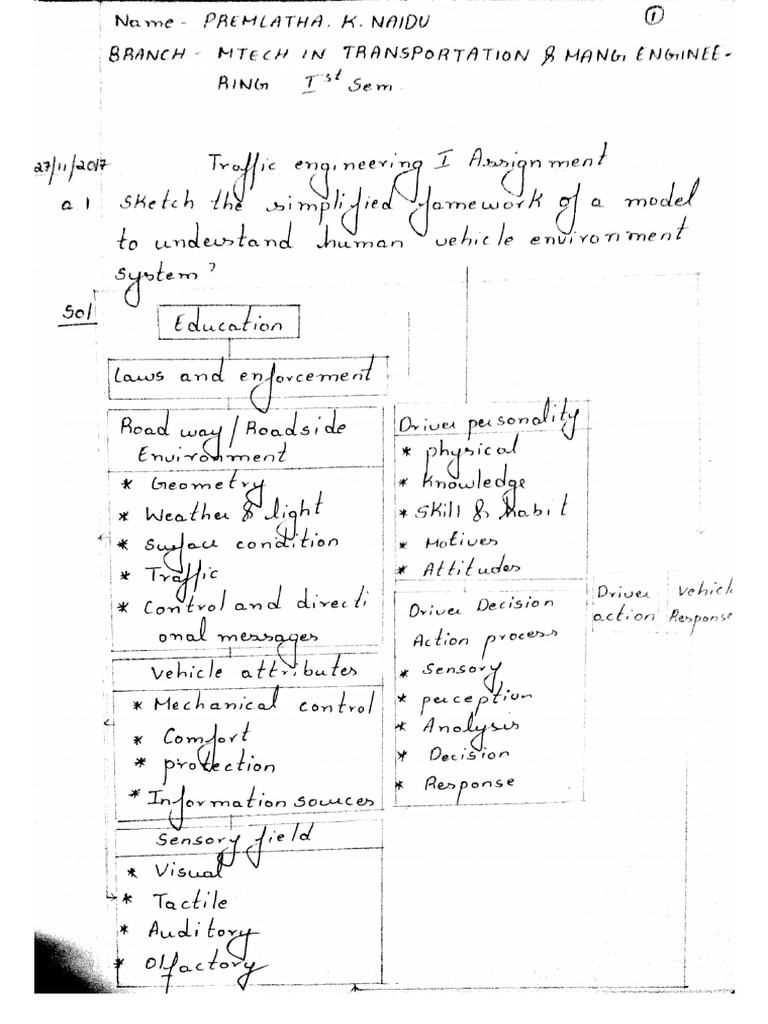 Name - PREMLATHA. K. NAIDU
①
BRANCH - MTECH IN TRANSPORTATION & MANG. ENGINEE-
RING Ist Sem.
27/11/2017 Traffic engineering I Assignment
Q.1 Sketch the simplified famework of a model
to understand human vehicle environment
System?
Sol
Education
Laws and enforcement
Road way / Roadside
Environment
* Geometry
* Weather & light
* Surface condition
* Traffic
* Control and directi
onal messages
Vehicle attributes
* Mechanical control
* Comfort
* protection
* Information sources
Sensory field
* Visual
* Tactile
* Auditory
* Olfactory
Driver personality
* physical
* Knowledge
* Skill & habit
* Motives
* Attitudes
Driver Decision
Action process
* Sensory
* perception
* Analysis
* Decision
* Response
Driver
action
Vehicle
Response